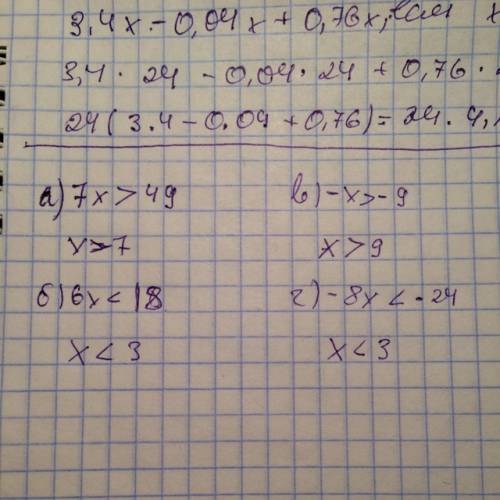 3,4x - 0,04x + 0,76x, если x
3,4 · 24 - 0,04 · 24 + 0,76 ·
24(3.4 - 0.04 + 0,76) = 24 · 4,
а) 7x > 49
x > 7
б) 6x < 18
x < 3
в) -x > -9
x > 9
г) -8x < -24
x < 3